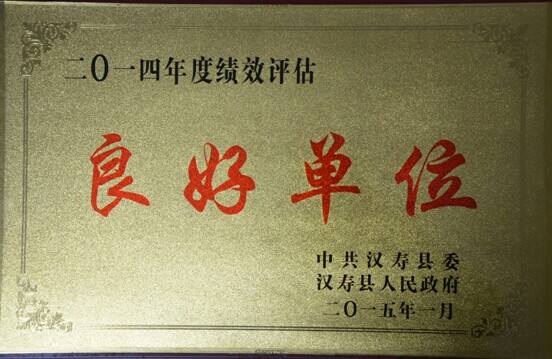 二〇一四年度绩效评估
良好单位
中共汉寿县委
汉寿县人民政府
二〇一五年一月